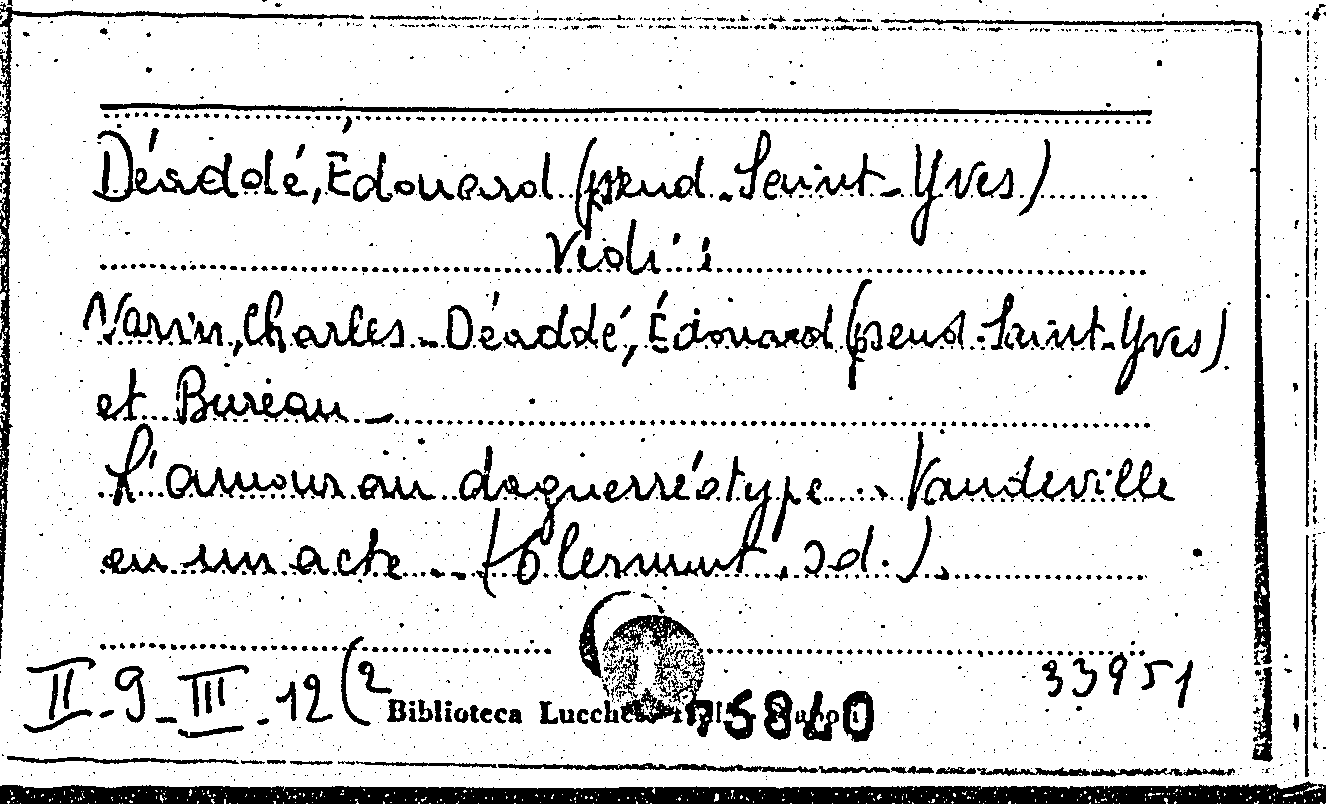 Déaddé, Édouard (pseud. Saint-Yves)
Vedi:
Varin, Charles - Déaddé, Édouard (pseud. Saint-Yves)
et Bureau -
L'amour au daguerréotype .. Vaudeville
en un acte .. (Clermont, s.d.).
33951
II - 9 - III - 12 (2
Biblioteca